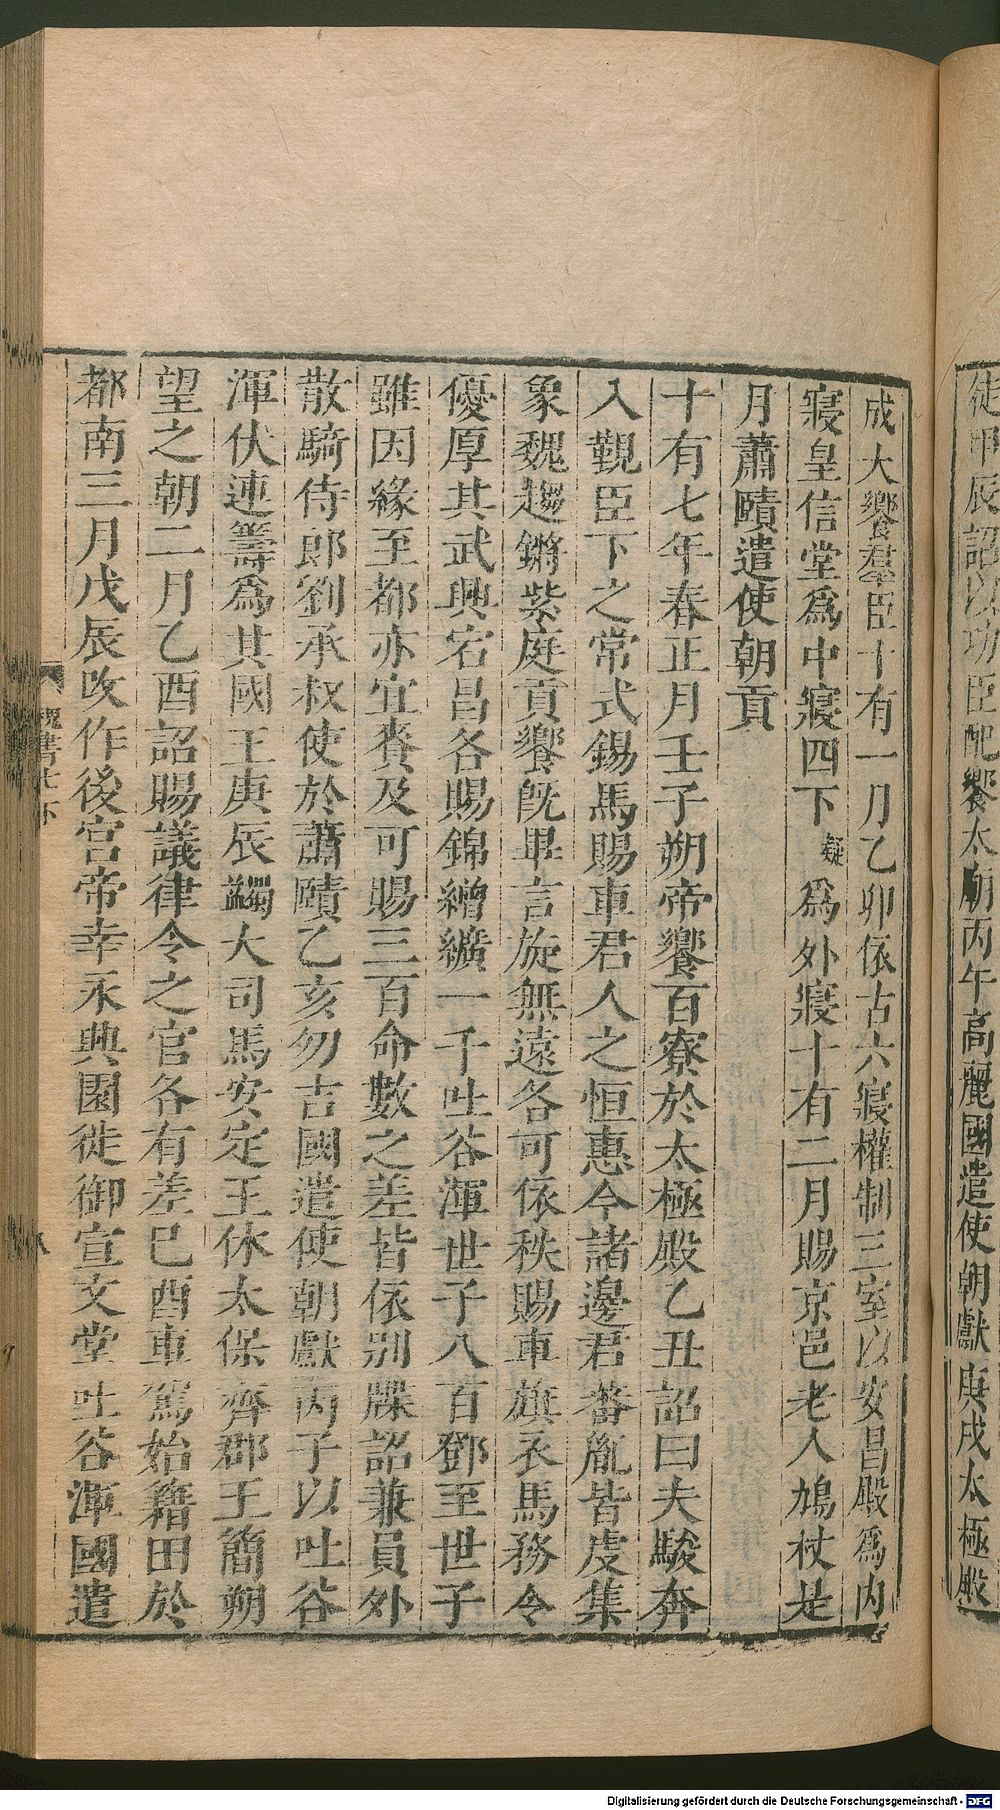 徒甲辰詔以功臣配饗太廟丙午高麗國遣使朝獻庚戌太極殿
成大饗羣臣十有一月乙卯依古六寢權制三室以安昌殿爲內
寢皇信堂爲中寢四下疑爲外寢十有二月賜京邑老人鳩杖是
月蕭賾遣使朝貢
十有七年春正月壬子朔帝饗百寮於太極殿乙丑詔曰夫駿奔
入覲臣下之常式錫馬賜車君人之恒惠今諸邊君蕃胤皆虔集
象魏趨鏘紫庭貢饗旣畢言旋無遠各可依秩賜車旗衣馬務令
優厚其武興宕昌各賜錦繒纊一千吐谷渾世子八百鄧至世子
雖因緣至都亦宜賚及可賜三百命數之差皆依别牒詔兼員外
散騎侍郎劉承叔使於蕭賾乙亥勿吉國遣使朝獻丙子以吐谷
渾伏連籌爲其國王庚辰蠲大司馬安定王休太保齊郡王簡朔
望之朝二月乙酉詔賜議律令之官各有差巳酉車駕始籍田於
都南三月戊辰改作後宮帝幸永興園徙御宣文堂吐谷渾國遣
魏書七下
Digitalisierung gefördert durch die Deutsche Forschungsgemeinschaft - DFG